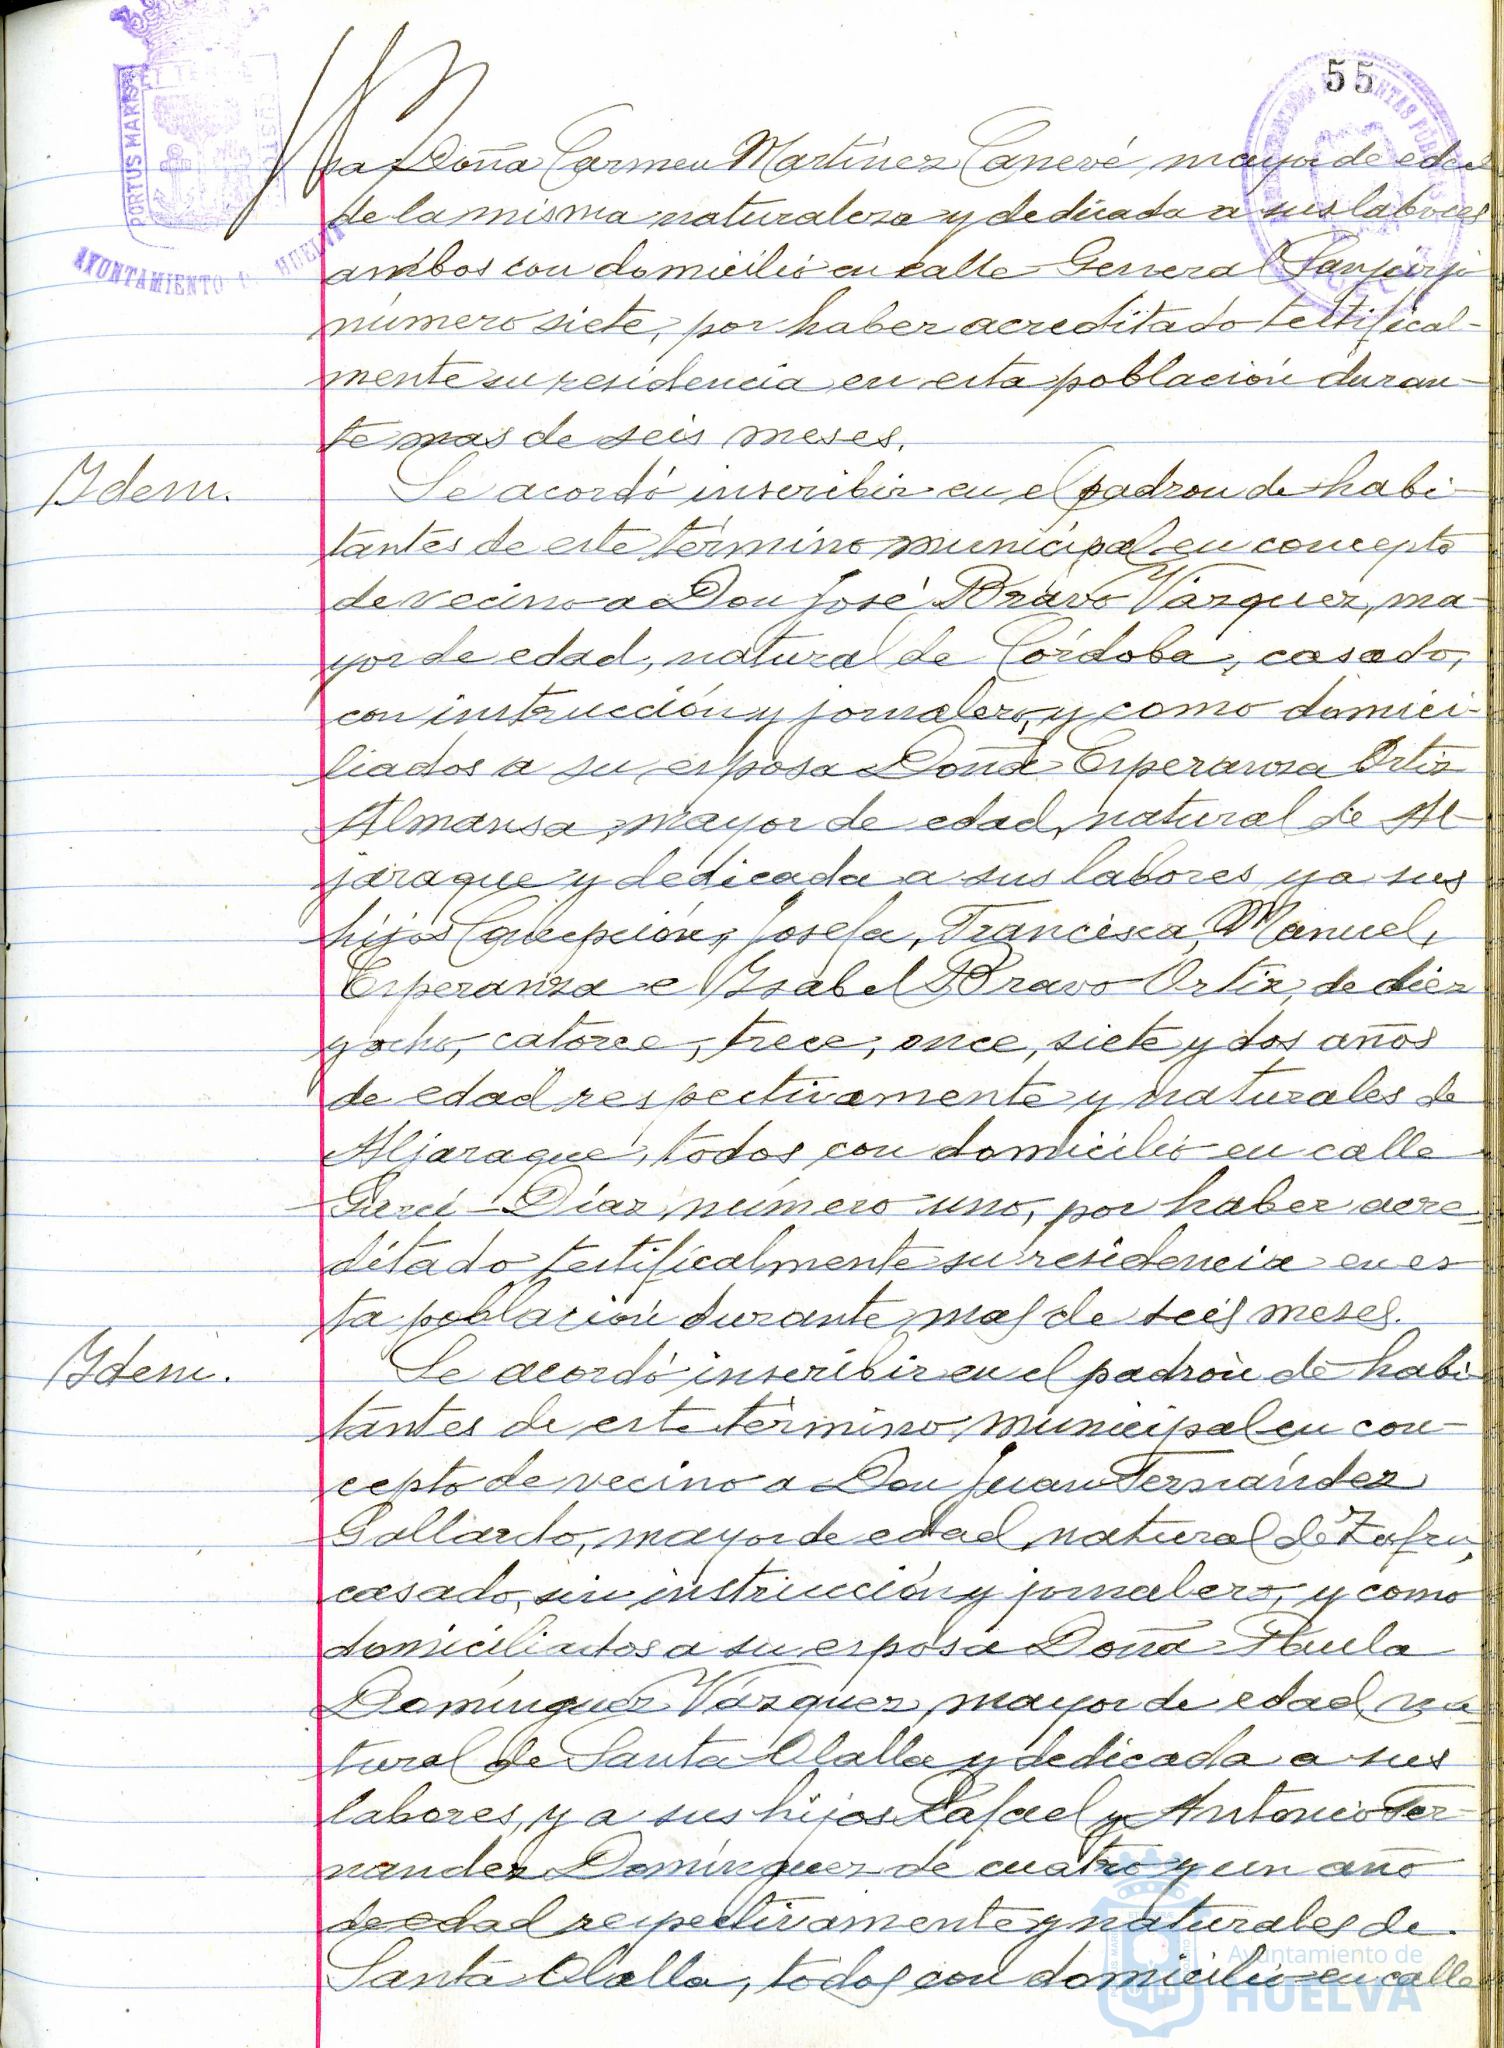 55
PORTUS MARIS ET TERRE CUSTO
AYUNTAMIENTO HUELVA
sa Doña Carmen Martínez Canevé, mayor de edad
de la misma naturaleza y dedicada a sus labores
ambos con domicilio en calle General Sanjurjo
número siete, por haber acreditado testifical-
mente su residencia en esta población duran-
te mas de seis meses.
Ydem.
Se acordó inscribir en el padron de habi-
tantes de este término municipal en concepto
de vecino a Don José Bravo Vázquez, ma-
yor de edad, natural de Córdoba, casado,
con instrucción y jornalero, y como domici-
liados a su esposa Doña Esperanza Ortiz
Almansa, mayor de edad, natural de Al-
jaraque y dedicada a sus labores y a sus
hijos Concepción, Josefa, Francisca, Manuel,
Esperanza e Ysabel Bravo Ortiz, de diez
y ocho, catorce, trece, once, siete y dos años
de edad respectivamente y naturales de
Aljaraque, todos con domicilio en calle
Garci-Díaz número uno, por haber acre-
ditado testificalmente su residencia en es-
ta población durante mas de seis meses.
Ydem.
Se acordó inscribir en el padrón de habi-
tantes de este término municipal en con-
cepto de vecino a Don Juan Fernández
Gallardo, mayor de edad natural de Zafra,
casado, sin instrucción y jornalero, y como
domiciliados a su esposa Doña Paula
Domínguez Vázquez, mayor de edad, na-
tural de Santa Olalla y dedicada a sus
labores, y a sus hijos Rafael y Antonio Fer-
nandez Domínguez de cuatro y un año
de edad respectivamente y naturales de
Santa Olalla, todos con domicilio en calle
Ayuntamiento de
HUELVA